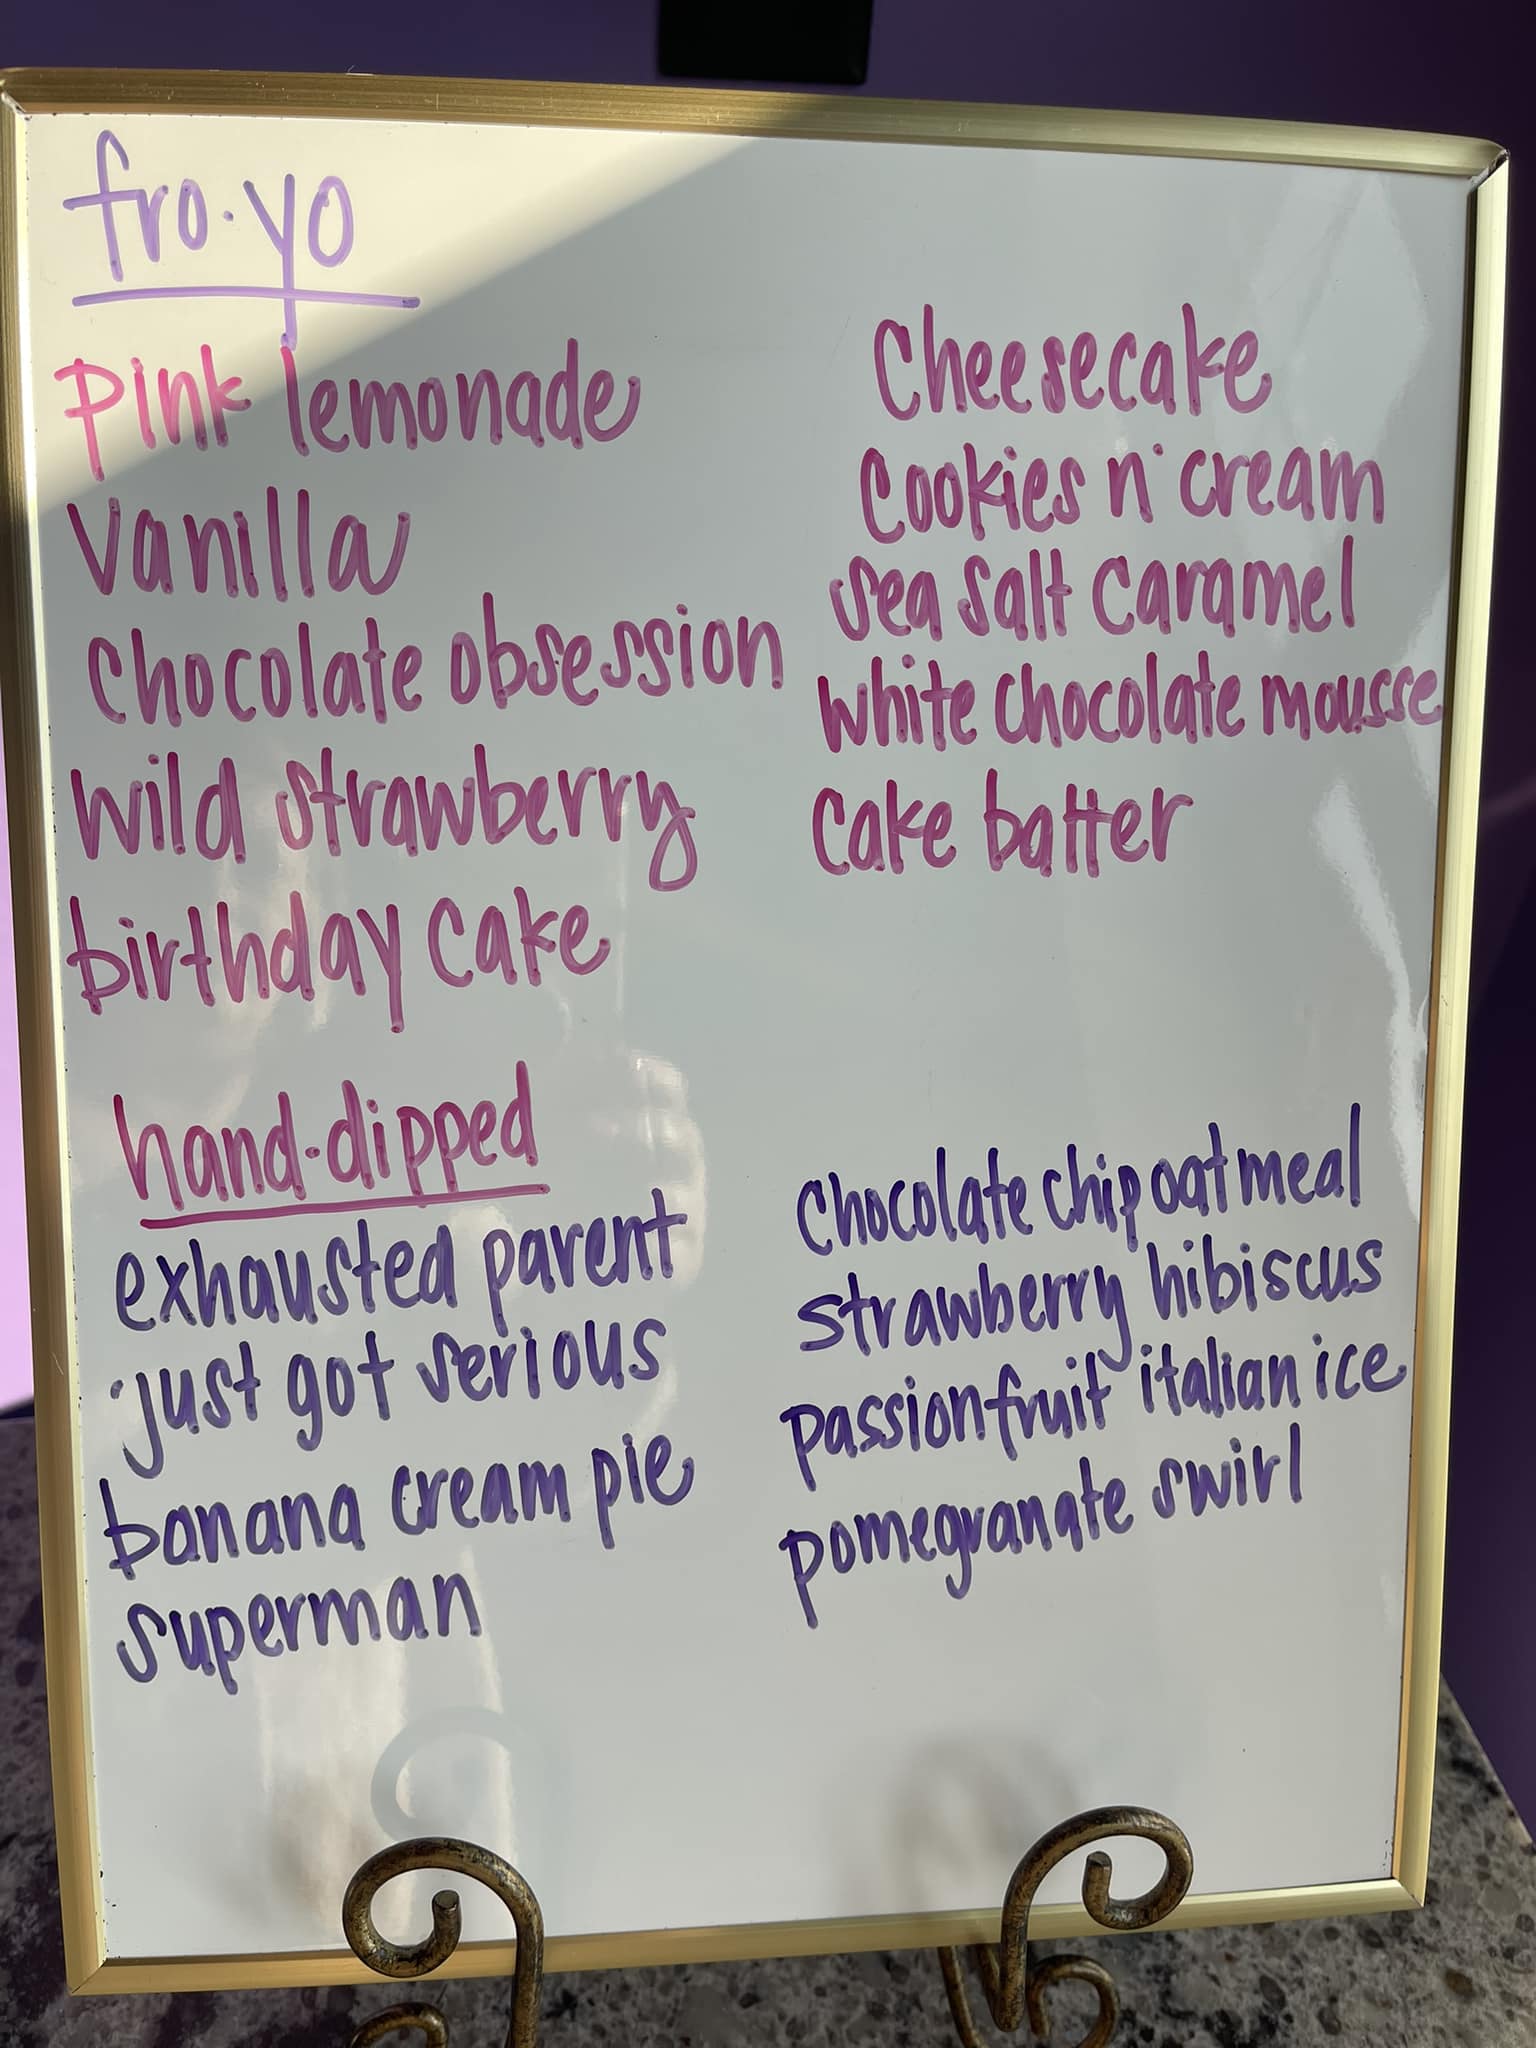 fro·yo
pink lemonade
vanilla
chocolate obsession
wild strawberry
birthday cake
cheesecake
cookies n' cream
sea salt caramel
white chocolate mousse
cake batter
hand-dipped
exhausted parent
just got serious
banana cream pie
superman
chocolate chip oatmeal
strawberry hibiscus
passionfruit italian ice
pomegranate swirl